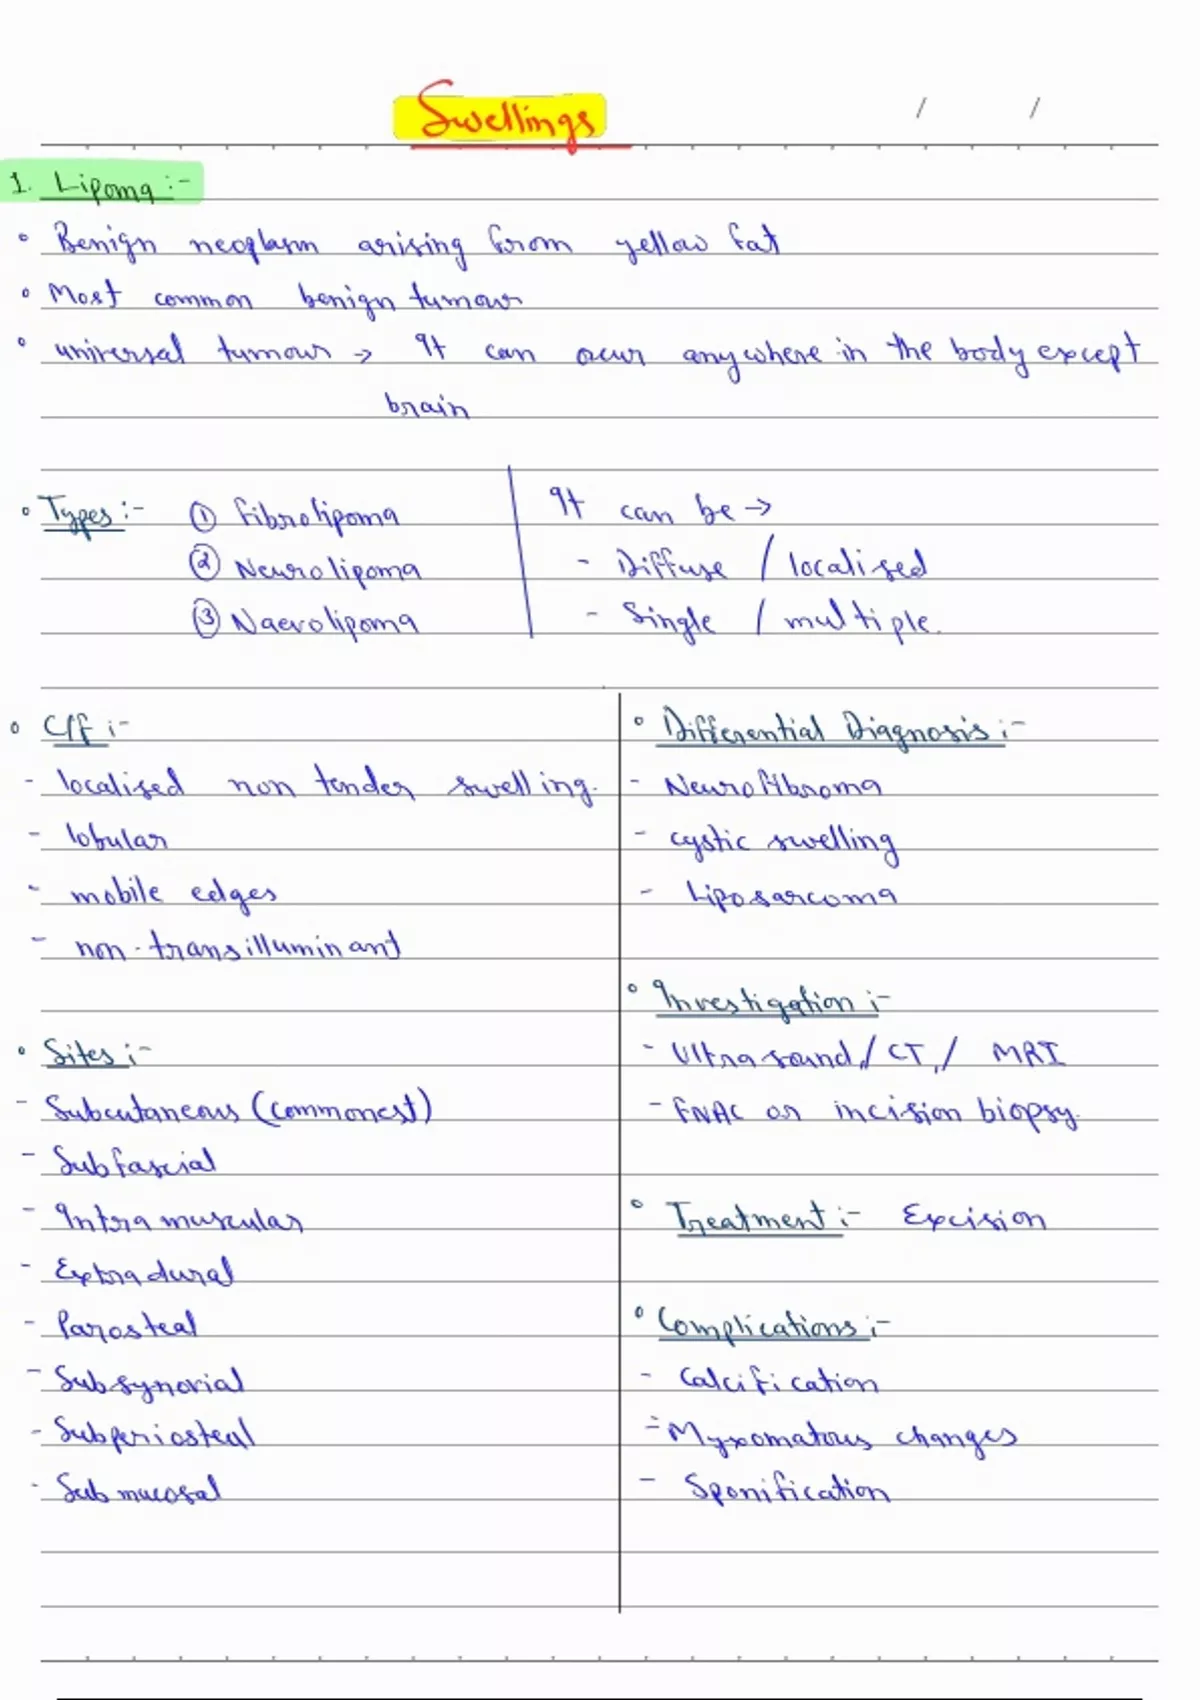 Swellings
/ /
1. Lipoma :-
° Benign neoplasm arising from yellow fat
° Most common benign tumour
° universal tumour → It can ocur anywhere in the body except
brain
° Types :- ① Fibrolipoma
② Neurolipoma
③ Naevolipoma
It can be →
- Diffuse / localised
- Single / multiple.
° C/f :-
- localised non tender swelling.
- lobular
- mobile edges
- non-transilluminant
° Sites :-
- Subcutaneous (commonest)
- Subfascial
- Intra muscular
- Extra dural
- Parosteal
- Subsynovial
- Subperiosteal
- Sub mucosal
° Differential Diagnosis :-
- Neurofibroma
- cystic swelling
- Liposarcoma
° Investigation :-
- Ultra sound / CT / MRI
- FNAC or incision biopsy.
° Treatment :- Excision
° Complications :-
- Calcification
- Myxomatous changes
- Sponification